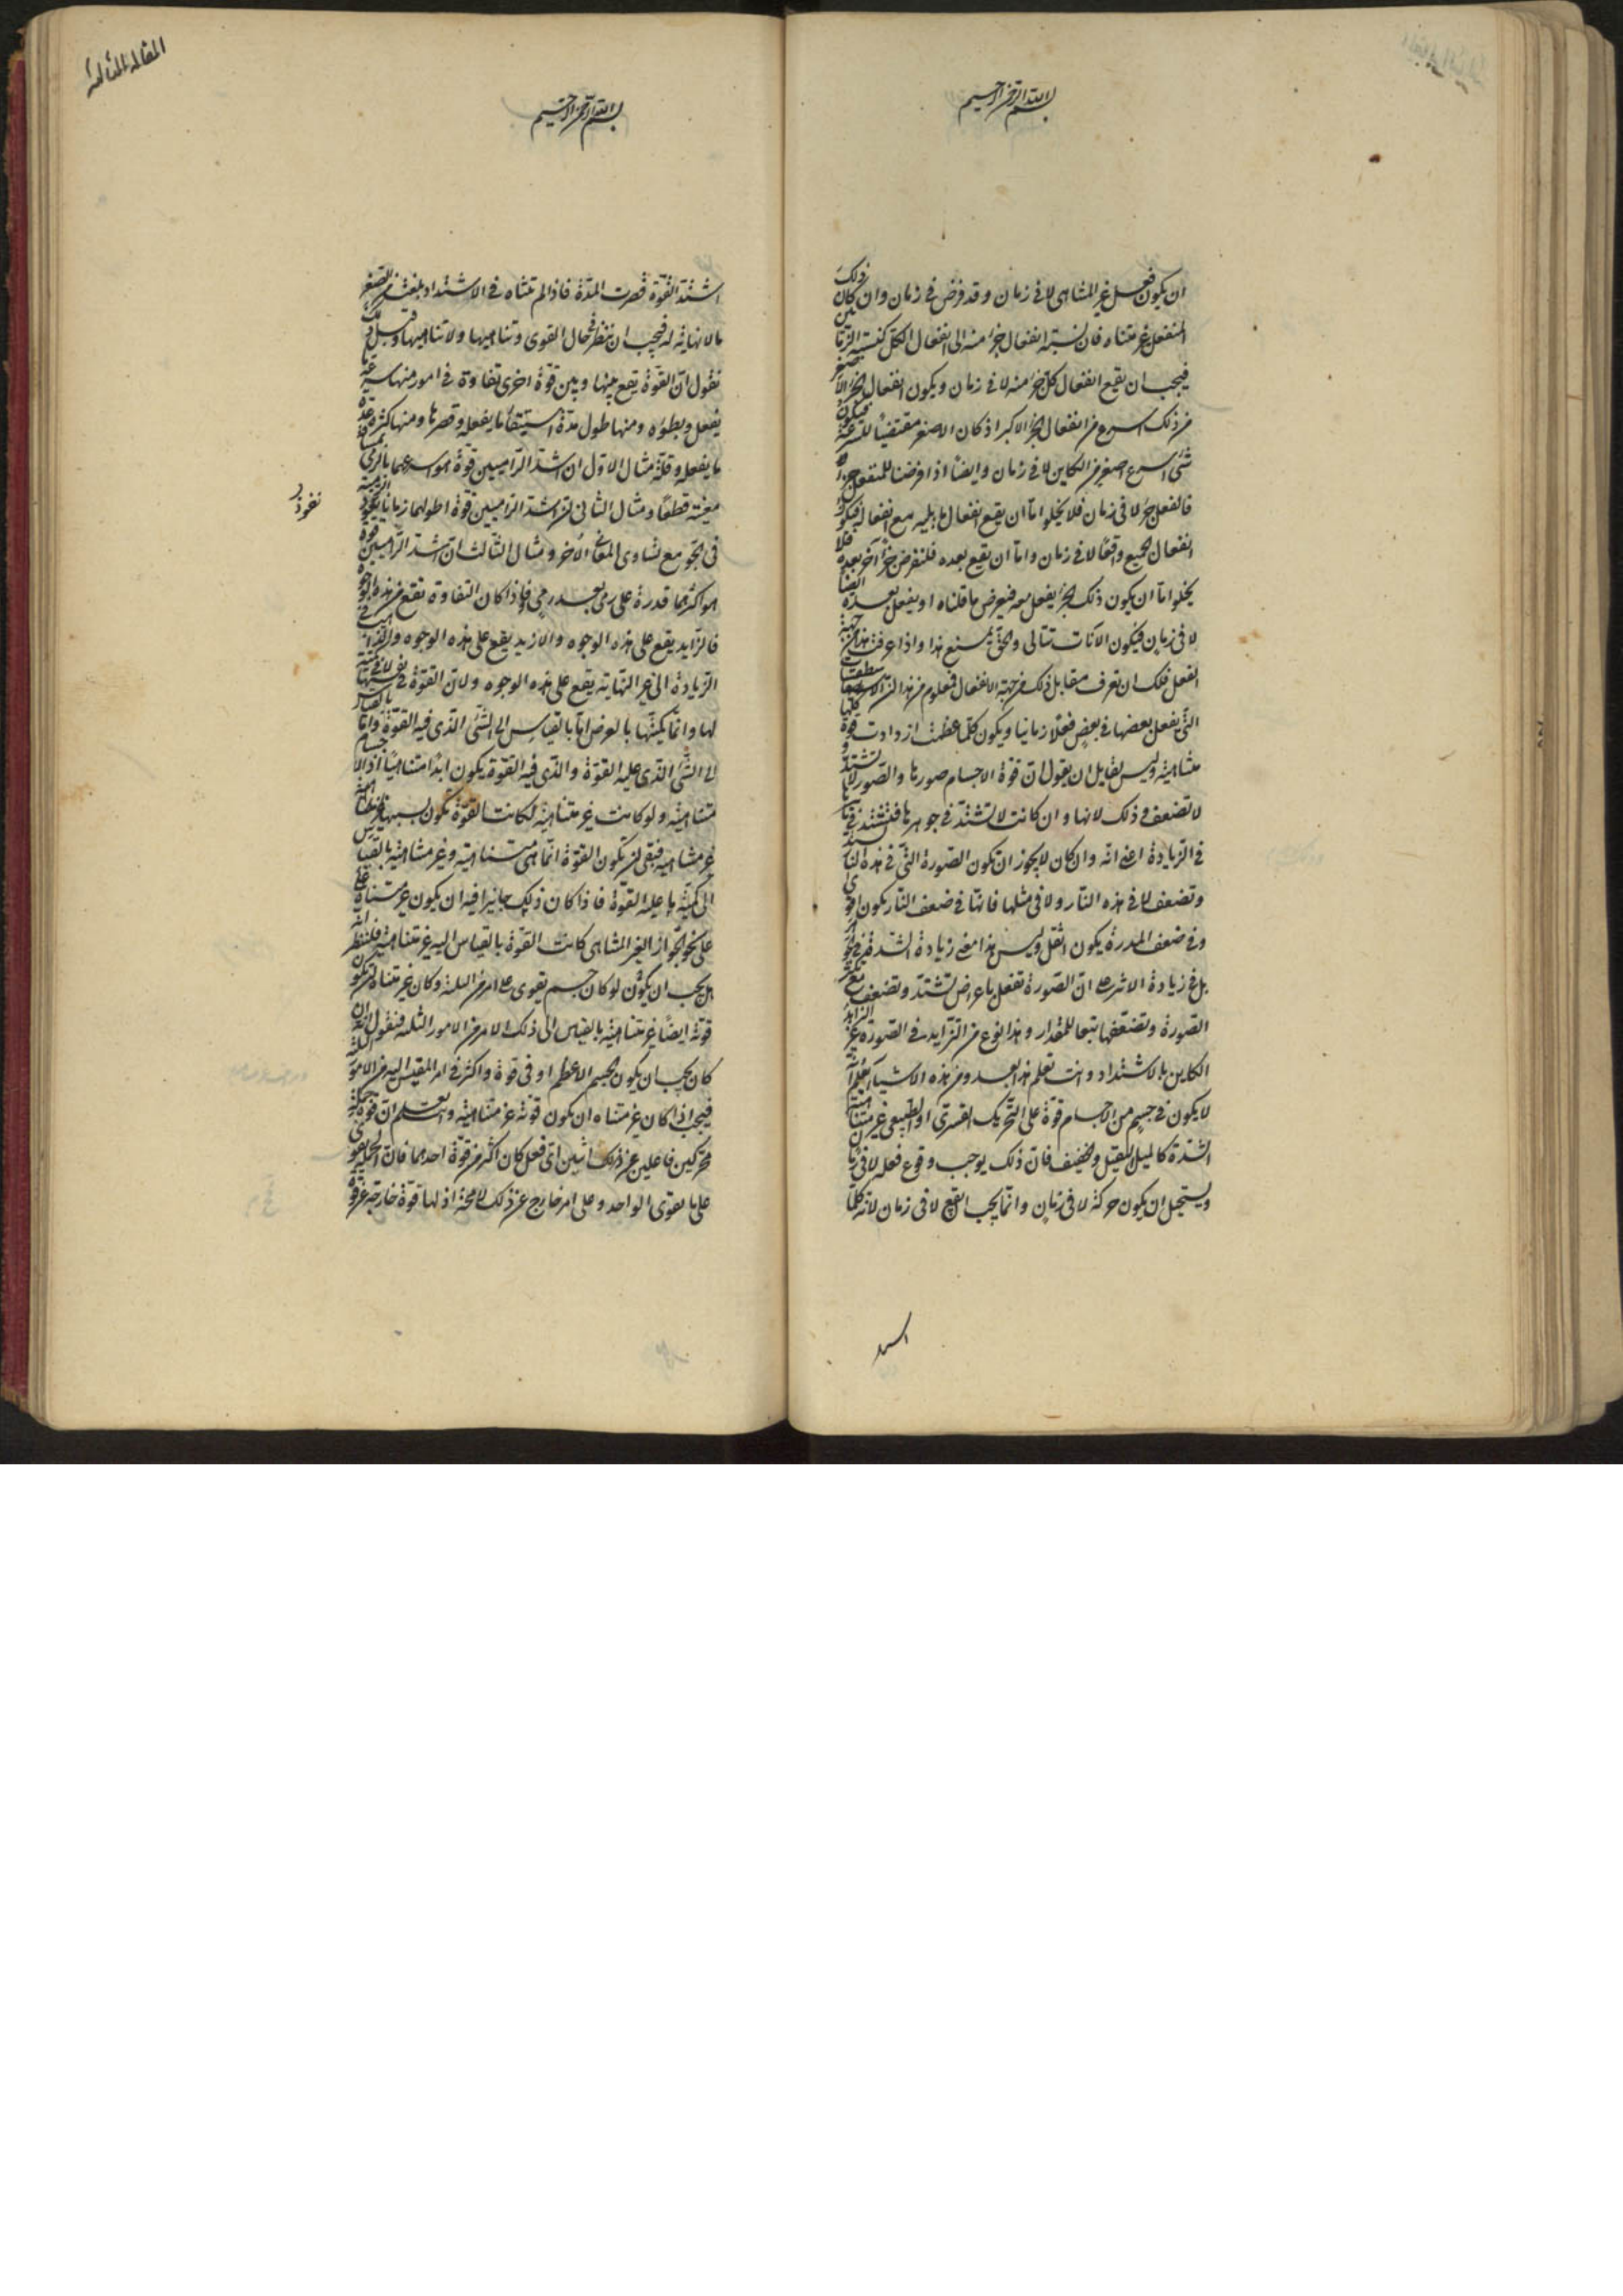 بسم الله الرحمن الرحيم
ان يكون فعل غير المتناهى لا فى زمان وقد فرض فى زمان وان كان ذلك
المنفعل غير متناه فان نسبة انفعال جزء منه الى انفعال الكل كنسبة الزمانين
فيجب ان يقع انفعال كل جزء منه لا فى زمان ويكون انفعال الجزء الاصغر
من ذلك اسرع من انفعال الجزء الاكبر اذ كان الاصغر مقتضيا للسرعة فيكون
شئ اسرع اصغر من الكاين لا فى زمان وايضا اذا فرضنا للمنفعل جزءا
فانفعل جزء لا فى زمان فلا يخلوا اما ان يقع انفعال ما يليه مع انفعاله فيكون
انفعال الجميع وقعا لا فى زمان واما ان يقع بعده فلنفرض جزءا آخر بعده فلا
يخلوا اما ان يكون ذلك الجزء يفعل معه فيعرض ما قلناه او يفعل بعده ايضا
لا فى زمان فيكون الآنات تتالى والحق يمنع هذا واذا عرفت هذا من جهة
الفعل فلك ان تعرف مقابل ذلك من جهة الانفعال فمعلوم من هذا ان
التى يفعل بعضها فى بعض فعلا زمانيا ويكون كلما عظمت ازدادت قوة كلها
متناهية وليس لقايل ان يقول ان قوة الاجسام صورها والصور لا تشتد و
لا تضعف وذلك لانها وان كانت لا تشتد فى جوهرها فتشتد فى
فى الزيادة اعنى انه وان كان لا يجوز ان تكون الصورة التى فى هذه النار تشتد
وتضعف لا فى هذه النار ولا فى مثلها فانها فى ضعف النار يكون اقوى
وفى ضعف المدرة يكون اثقل وليس هذا معنى زيادة الشدة فى
بل فى زيادة الاثر على ان الصورة تفعل باعراض تشتد وتضعف مع
الصورة وتضعفها تبعا للمقدار وهذا نوع من التزايد فى الصورة غير الزايد
الكاين بالاشتداد وانت تعلم هذا بعد ومن هذه الاشياء تعلم انه
لا يكون فى جسم من الاجسام قوة على التحريك القسرى او الطبيعى غير متناهية
الشدة كالميل الثقيل والخفيف فان ذلك يوجب وقوع فعله لا فى زمان
ويستحيل ان يكون حركة لا فى زمان وانما يجب ان يقع لا فى زمان لانه كلما
المقالة الثالثة
بسم الله الرحمن الرحيم
اشتدت القوة قصرت المدة فاذا لم تتناه فى الاشتداد بلغت من القصر
ما لا نهاية له فيجب ان ننظر فى حال القوى وتناهيها ولا تناهيها وقبل ذلك
نقول ان القوة يقع بينها وبين قوة اخرى تفاوت فى امور منها سرعة ما
يفعل وبطؤه ومنها طول مدة استبقاء ما يفعله وقصرها ومنها كثرة عدة
ما يفعله وقلته مثال الاول ان اشد الراميين قوة هو اسرعهما بالرمى لمسافة
معينة قطعا ومثال الثانى ان اشد الراميين قوة اطولهما زمانا
نفوذ
فى الجو مع تساوى المعانى الاخر ومثال الثالث ان اشد الراميين قوة
هو اكثرهما قدرة على رمى بعد رمى واذا كان التفاوت تقع من هذه الوجوه
فالزايد يقع على هذه الوجوه والازيد يقع على هذه الوجوه والذاهب فى
الزيادة الى غير النهاية يقع على هذه الوجوه ولان القوة فى نفسها لا كمية
لها وانما كميتها بالعرض اما بالقياس الى الشئ الذى فيه القوة واما بالقياس
الى الشئ الذى عليه القوة والذى فيه القوة يكون ابدا متناهيا اذ الاجسام
متناهية ولو كانت غير متناهية لكانت القوة تكون بسببها
غير متناهية فبقى ان تكون القوة انما هى متناهية وغير متناهية بالقياس
الى كمية ما عليه القوة فاذا كان ذلك جايزا فيه ان يكون غير متناه
على نحو الجواز الغير المتناهى كانت القوة بالقياس اليه غير متناهية فلننظر انه
هل يجب ان يكون لو كان جسم يقوى على امر من الثلثة وكان غير متناه ان تكون
قوته ايضا غير متناهية بالقياس الى ذلك الامر من الامور الثلثة فنقول انه ان
كان يجب ان يكون الجسم الاعظم اوفى قوة واكثر فى امر المقيس اليه من الامور الثلثة
فيجب اذا كان غير متناه ان يكون قوته غير متناهية ولنعلم ان قوة جملة
محركين فاعلين غير ذلك اثنين اى فعل كان اكثر من قوة احدهما فان الجملة يقوى
على ما يقوى الواحد وعلى امر خارج عن ذلك لا محة اذ لها قوة خارجة عن قوة